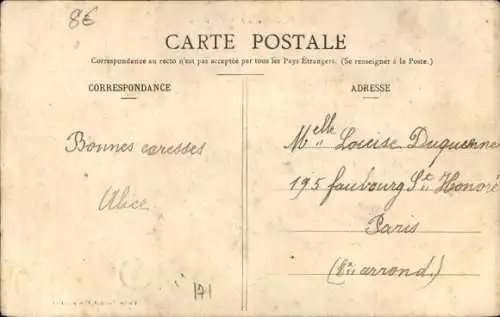 8€
CARTE POSTALE
Correspondance au recto n'est pas acceptée par tous les Pays Étrangers. (Se renseigner à la Poste.)
CORRESPONDANCE
ADRESSE
Bonnes caresses
Alice
Melle Louise Duquenne
195 faubourg St Honoré
Paris
arrond.)
171